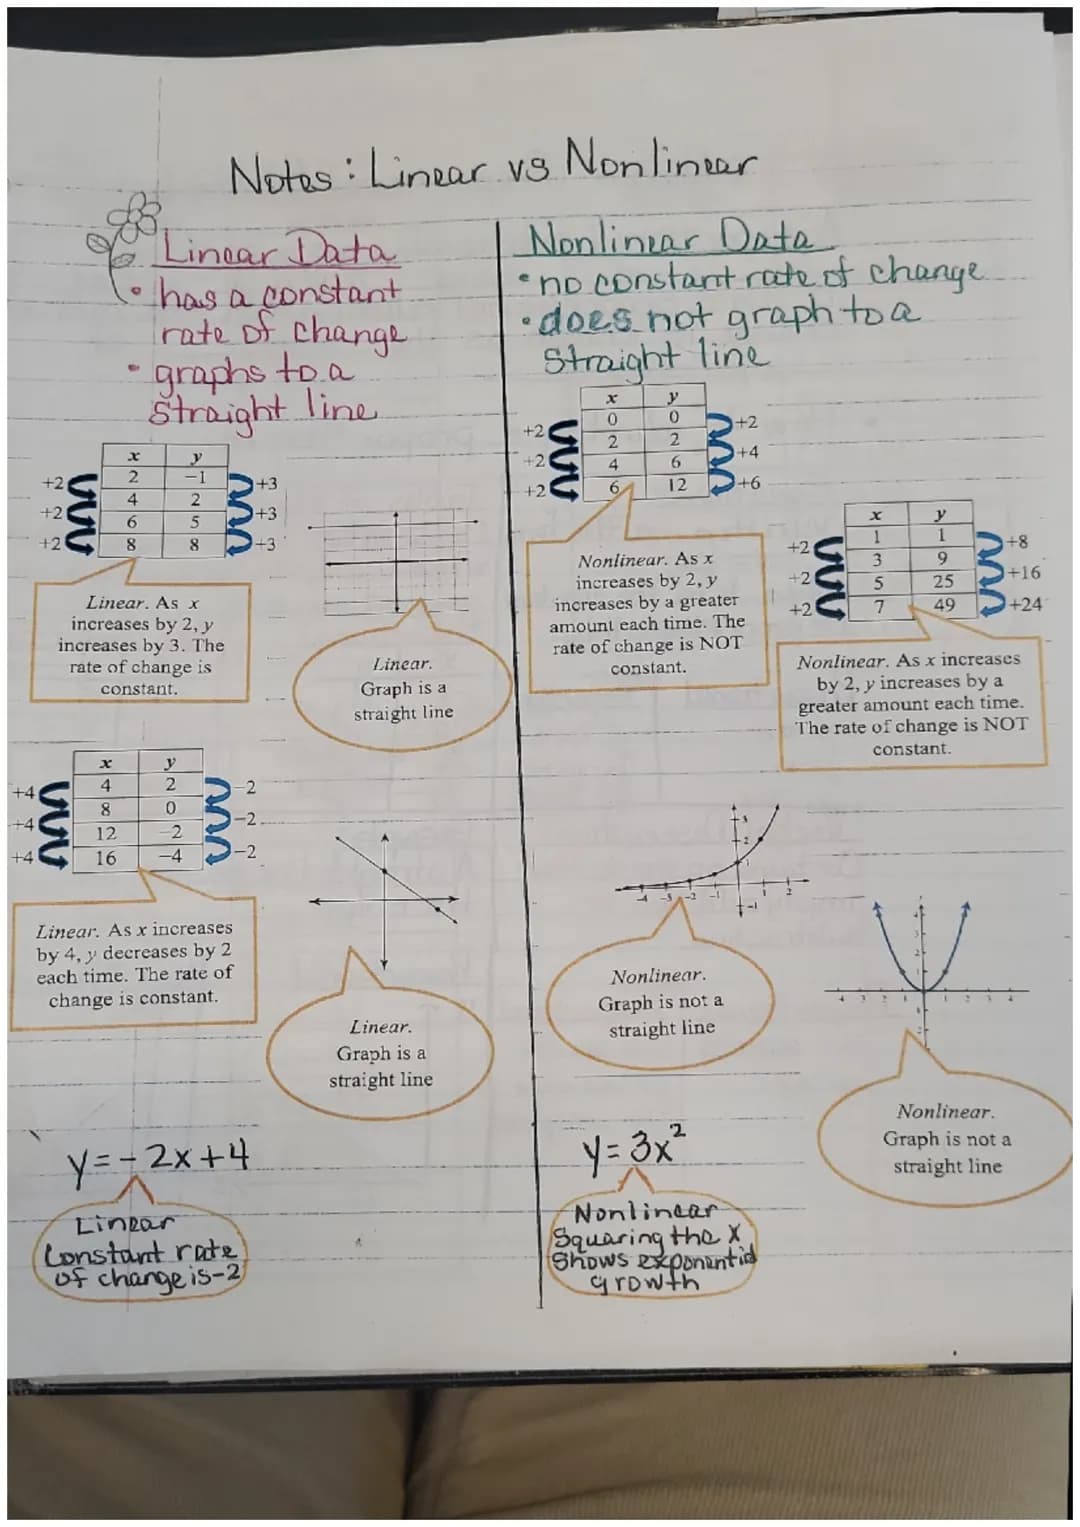 Notes: Linear vs Nonlinear
Linear Data
• has a constant
rate of change
• graphs to a
straight line
x y
2 −1
4 2
6 5
8 8
+2
+2
+2
+3
+3
+3
Linear. As x
increases by 2, y
increases by 3. The
rate of change is
constant.
Linear.
Graph is a
straight line
x y
4 2
8 0
12 −2
16 −4
+4
+4
+4
−2
−2
−2
Linear. As x increases
by 4, y decreases by 2
each time. The rate of
change is constant.
Linear.
Graph is a
straight line
y=-2x+4
Linear
Constant rate
of change is -2
Nonlinear Data
• no constant rate of change
• does not graph to a
straight line
x y
0 0
2 2
4 6
6 12
+2
+2
+2
+2
+4
+6
Nonlinear. As x
increases by 2, y
increases by a greater
amount each time. The
rate of change is NOT
constant.
x y
1 1
3 9
5 25
7 49
+2
+2
+2
+8
+16
+24
Nonlinear. As x increases
by 2, y increases by a
greater amount each time.
The rate of change is NOT
constant.
Nonlinear.
Graph is not a
straight line
Nonlinear.
Graph is not a
straight line
y=3x²
Nonlinear
Squaring the x
shows exponential
growth